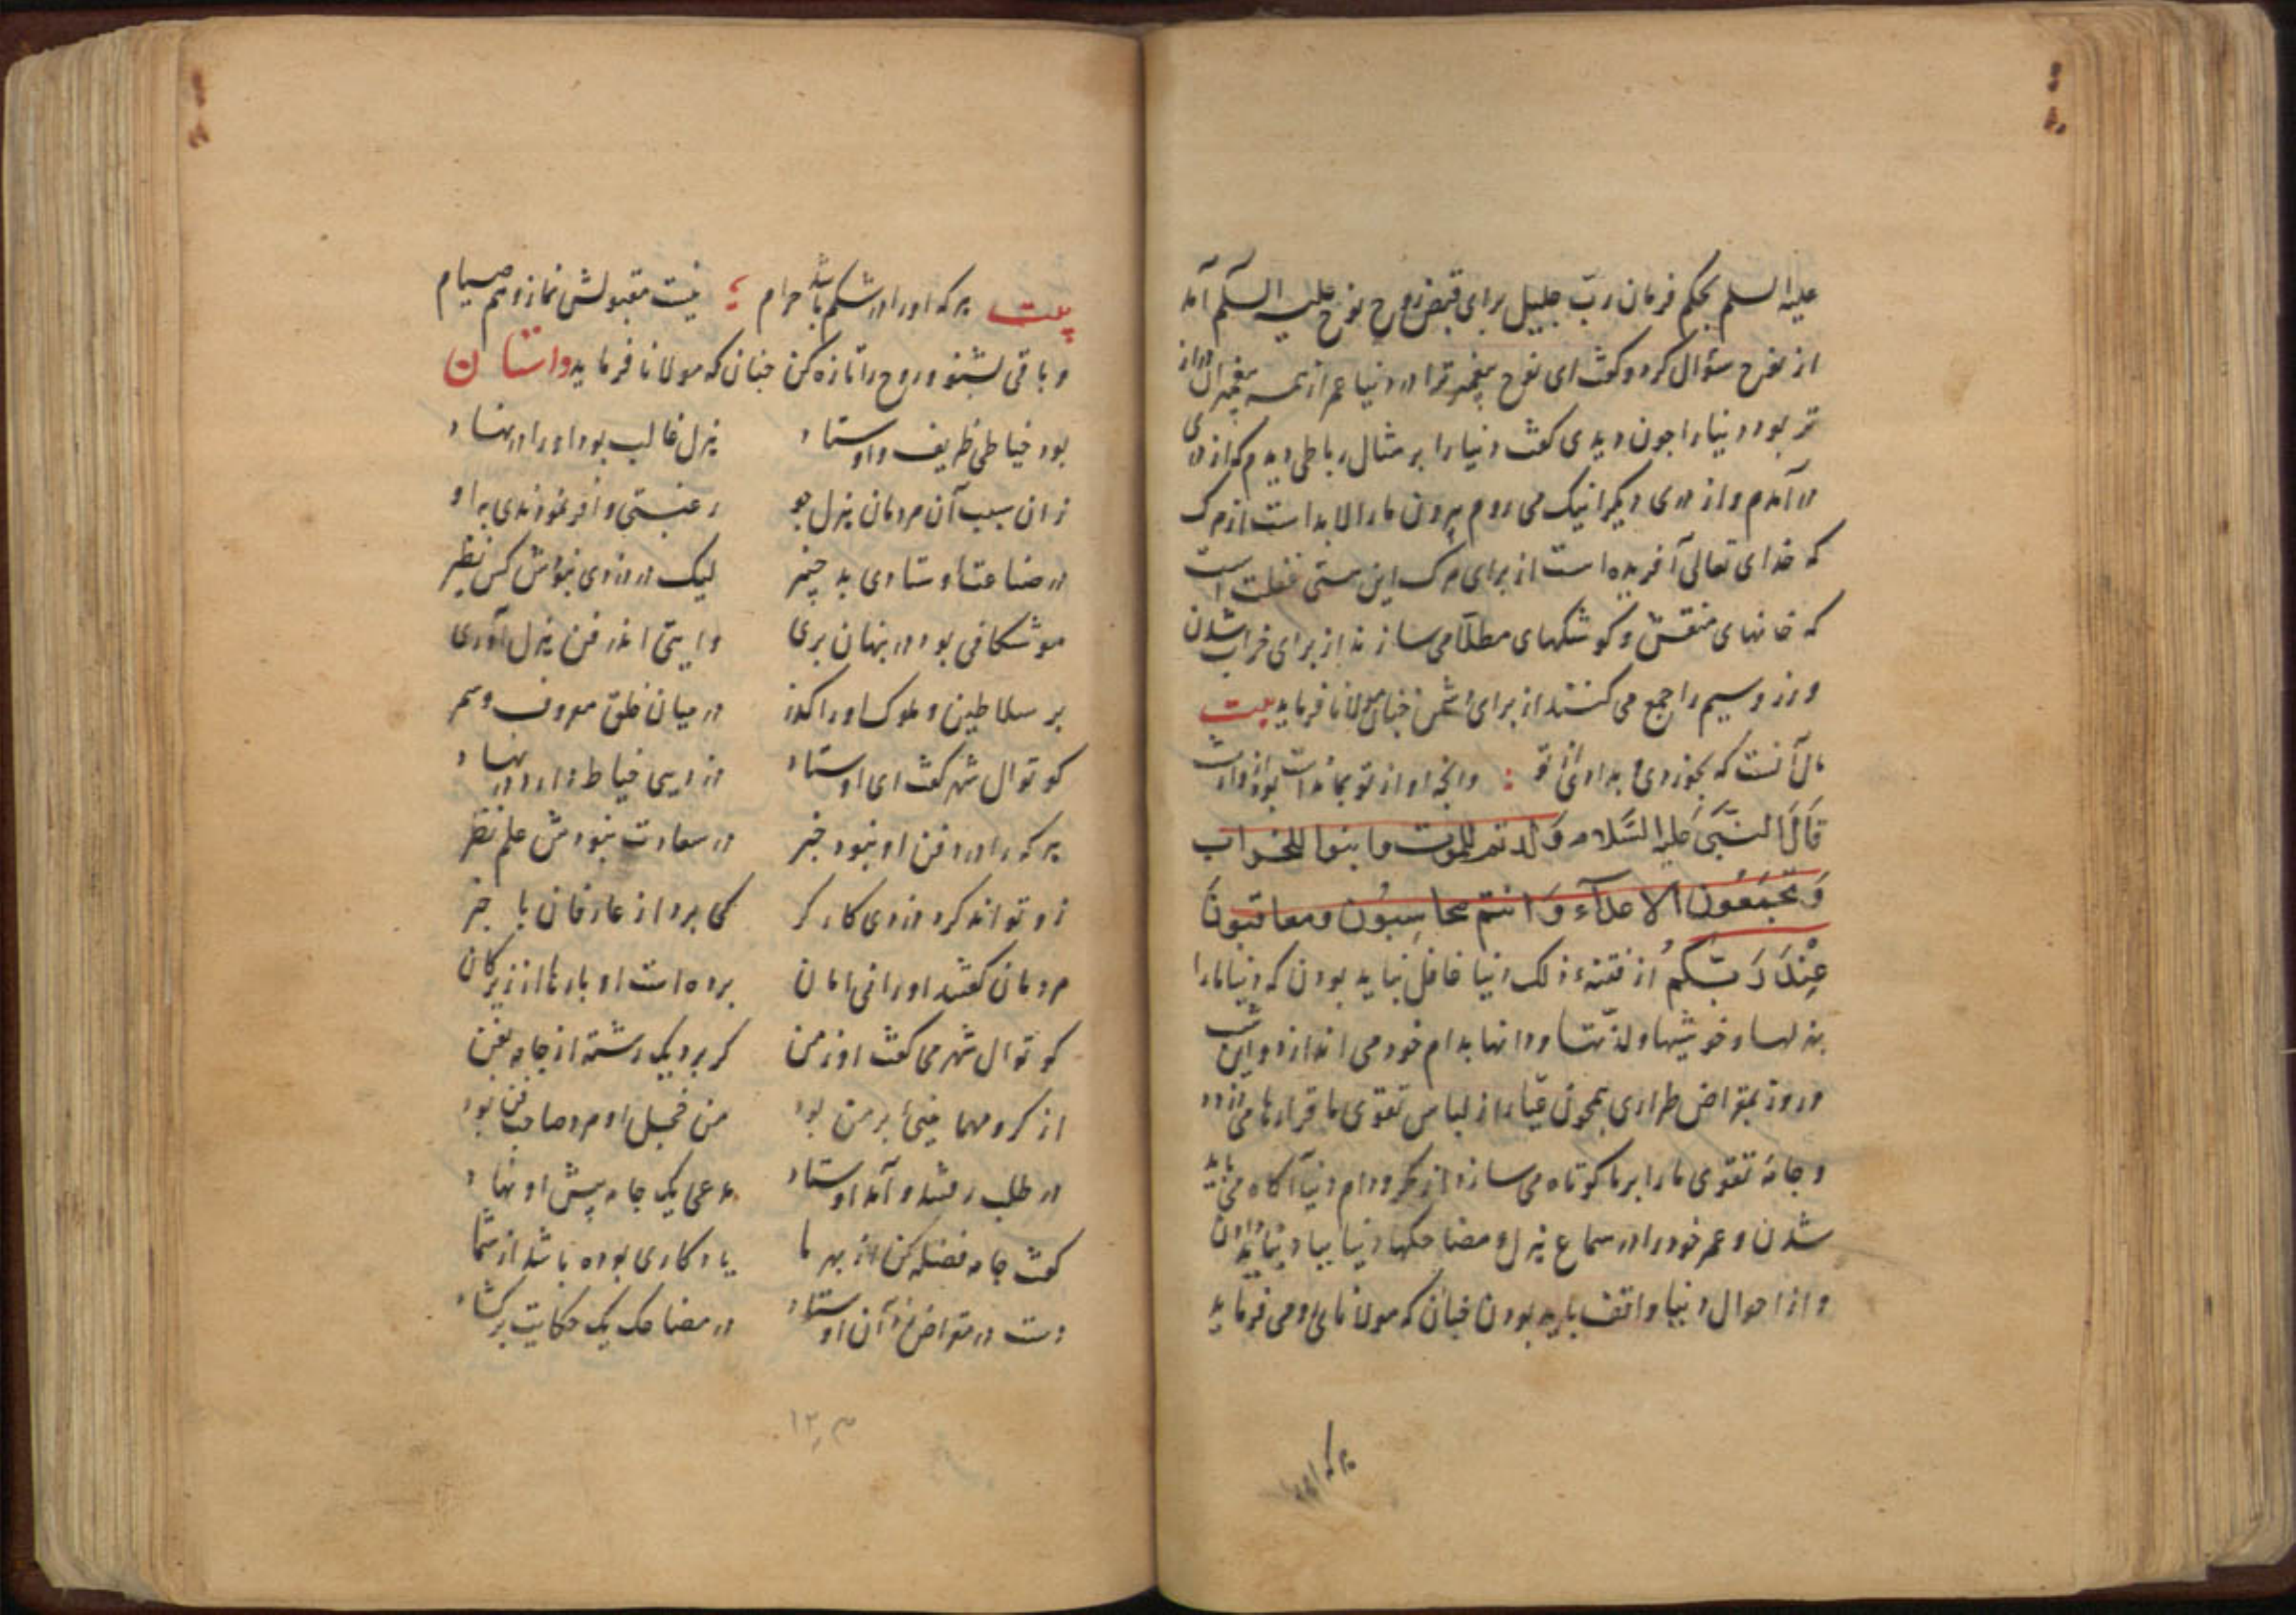 علیه السلم بحکم فرمان ربّ جلیل برای قبض روح نوح علیه السلم آمد
از نوح سؤال کرد و کفت ای نوح پیغمبر ترا در دنیا عمر از همه پیغمبران دراز
تر بود دنیا را جون دیدی کفت دنیا را بر مثال رباطی دیدم که از دری
در آمدم و از دری دیکر اینک می روم بیرون ما را لا بد است از مرک
که خدای تعالی آفریده است از برای مرک این هستی غفلت است
که خانهای منقش و کوشکهای مطلّا می سازند از برای خراب شدن
و زر و سیم را جمع می کنند از برای دشمن جنان مولانا فرماید بیت
مال آنست که بخوردی و بدادی از تو : وانچه او از تو بماندست بود از وارث
قَالَ النَّبَیّ عَلیه السَّلام وَلَدتم للموت وابنوا للخراب
وَتجمَعُون الاعدآء وَانتم محاسِبُون ومعاقبونَ
عِنْدَ رَبّکمُ از فتنهء ذلک دنیا غافل نباید بودن که دنیا ما را
بهزلها و خوشیها و لذّتها و دانها بدام خود می اندازد و این شب
و روز بمقراض طراری همچون عیّار از لباس تقوی ما قرارها می دزدد
و جامۀ تقوی ما را بر ما کوتاه می سازد از مکر و دام دنیا آکاه می باید
شدن و عمر خود را در سماع هزل و مضاحکها دنیا بباد نباید دادن
و از احوال دنیا واقف باید بودن جنان که مولانای رومی فرماید
هر که اورا
بیت هر که اورا در شکم باشد حرام ؛ نیست مقبولش نماز و هم صیام
و باقی بشنو و روح را تازه کن جنان که مولانا فرماید داستان
بود خیاطی ظریف و اوستاد هزل غالب بود اورا در نهاد
زان سبب آن مردمان هزل جو رغبتی وافر نمودندی به او
در صناعت اوستادی بد چیر لیک در دزدی نبودش کس نظیر
موشکافی بود در پنهان بری وایتی اندر فن هزل آوری
بر سلاطین و ملوک اورا کذر در میان خلق معروف و سمر
کوتوال شهر کفت ای اوستاد دزدیی خیاط دارد در نهاد
هر که را در فن او نبود خبر در سعادت نبودش علم نظر
زو تواند کرد دزدی کارکر کی برد از عارفان با خبر
مردمان کفتند اورا نی امان برده است او بارها از زیرکان
کوتوال شهر می کفت او ز من کر برد یک رشته از جامه بفن
از کرو مهمانیئ بر من بود من خجل او مرد صاحب فن بود
در طلب رفتند و آمد اوستاد مدعی یک جامه پیش او نهاد
کفت جامه فضله کن از بهر ما یادکاری بوده باشد از شما
دست در مقراض زد آن اوستاد در مضاحک یک حکایت برکشاد